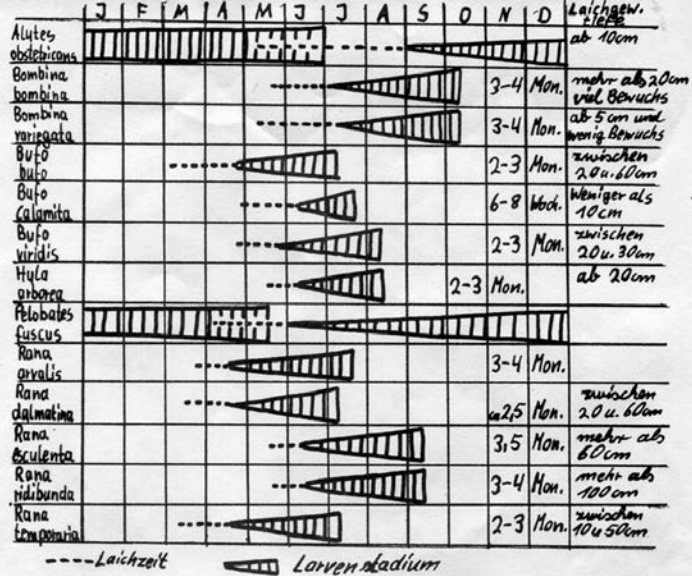 J F M A M J J A S O N D Laichgew.
tiefe
Alytes
obstetricans
ab 10cm
Bombina
bombina
3-4 Mon.
mehr als 20cm
viel Bewuchs
Bombina
variegata
3-4 Mon.
ab 5cm und
wenig Bewuchs
Bufo
bufo
2-3 Mon.
zwischen
20 u. 60cm
Bufo
calamita
6-8 Woch.
Weniger als
10cm
Bufo
viridis
2-3 Mon.
zwischen
20 u. 30cm
Hyla
arborea
2-3 Mon.
ab 20cm
Pelobates
fuscus
Rana
arvalis
3-4 Mon.
Rana
dalmatina
ca 2,5 Mon.
zwischen
20 u. 60cm
Rana
esculenta
3,5 Mon.
mehr als
60cm
Rana
ridibunda
3-4 Mon.
mehr als
100cm
Rana
temporaria
2-3 Mon.
zwischen
10 u 50cm
Laichzeit Larvenstadium